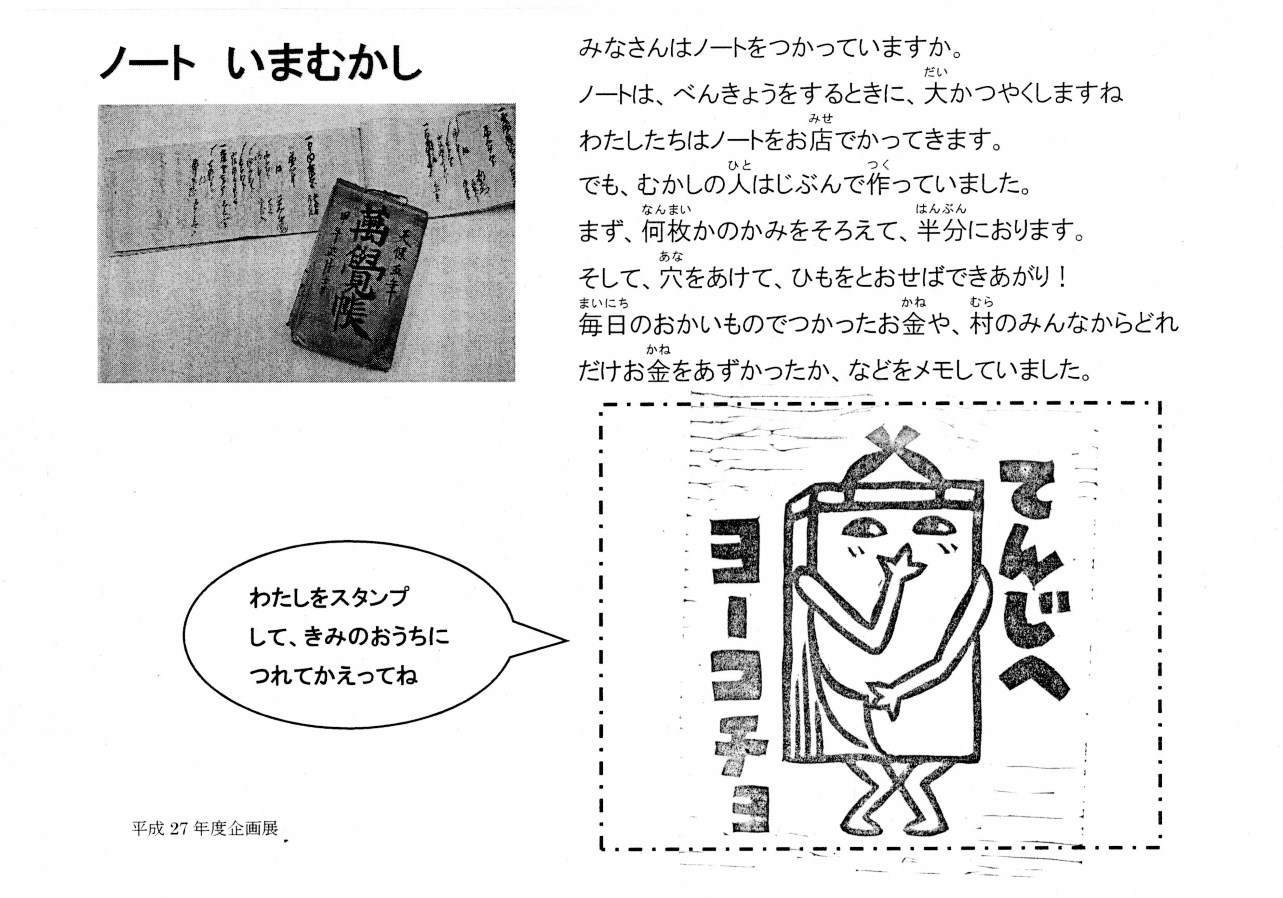 ノート　いまむかし
萬覺帳
天保五年
みなさんはノートをつかっていますか。
ノートは、べんきょうをするときに、大かつやくしますね
だい
わたしたちはノートをお店でかってきます。
みせ
でも、むかしの人はじぶんで作っていました。
ひと　つく
まず、何枚かのかみをそろえて、半分におります。
なんまい　はんぶん
そして、穴をあけて、ひもをとおせばできあがり！
あな
毎日のおかいものでつかったお金や、村のみんなからどれ
まいにち　かね　むら
だけお金をあずかったか、などをメモしていました。
かね
わたしをスタンプ
して、きみのおうちに
つれてかえってね
てんじへ
ヨーコチョ
平成 27 年度企画展